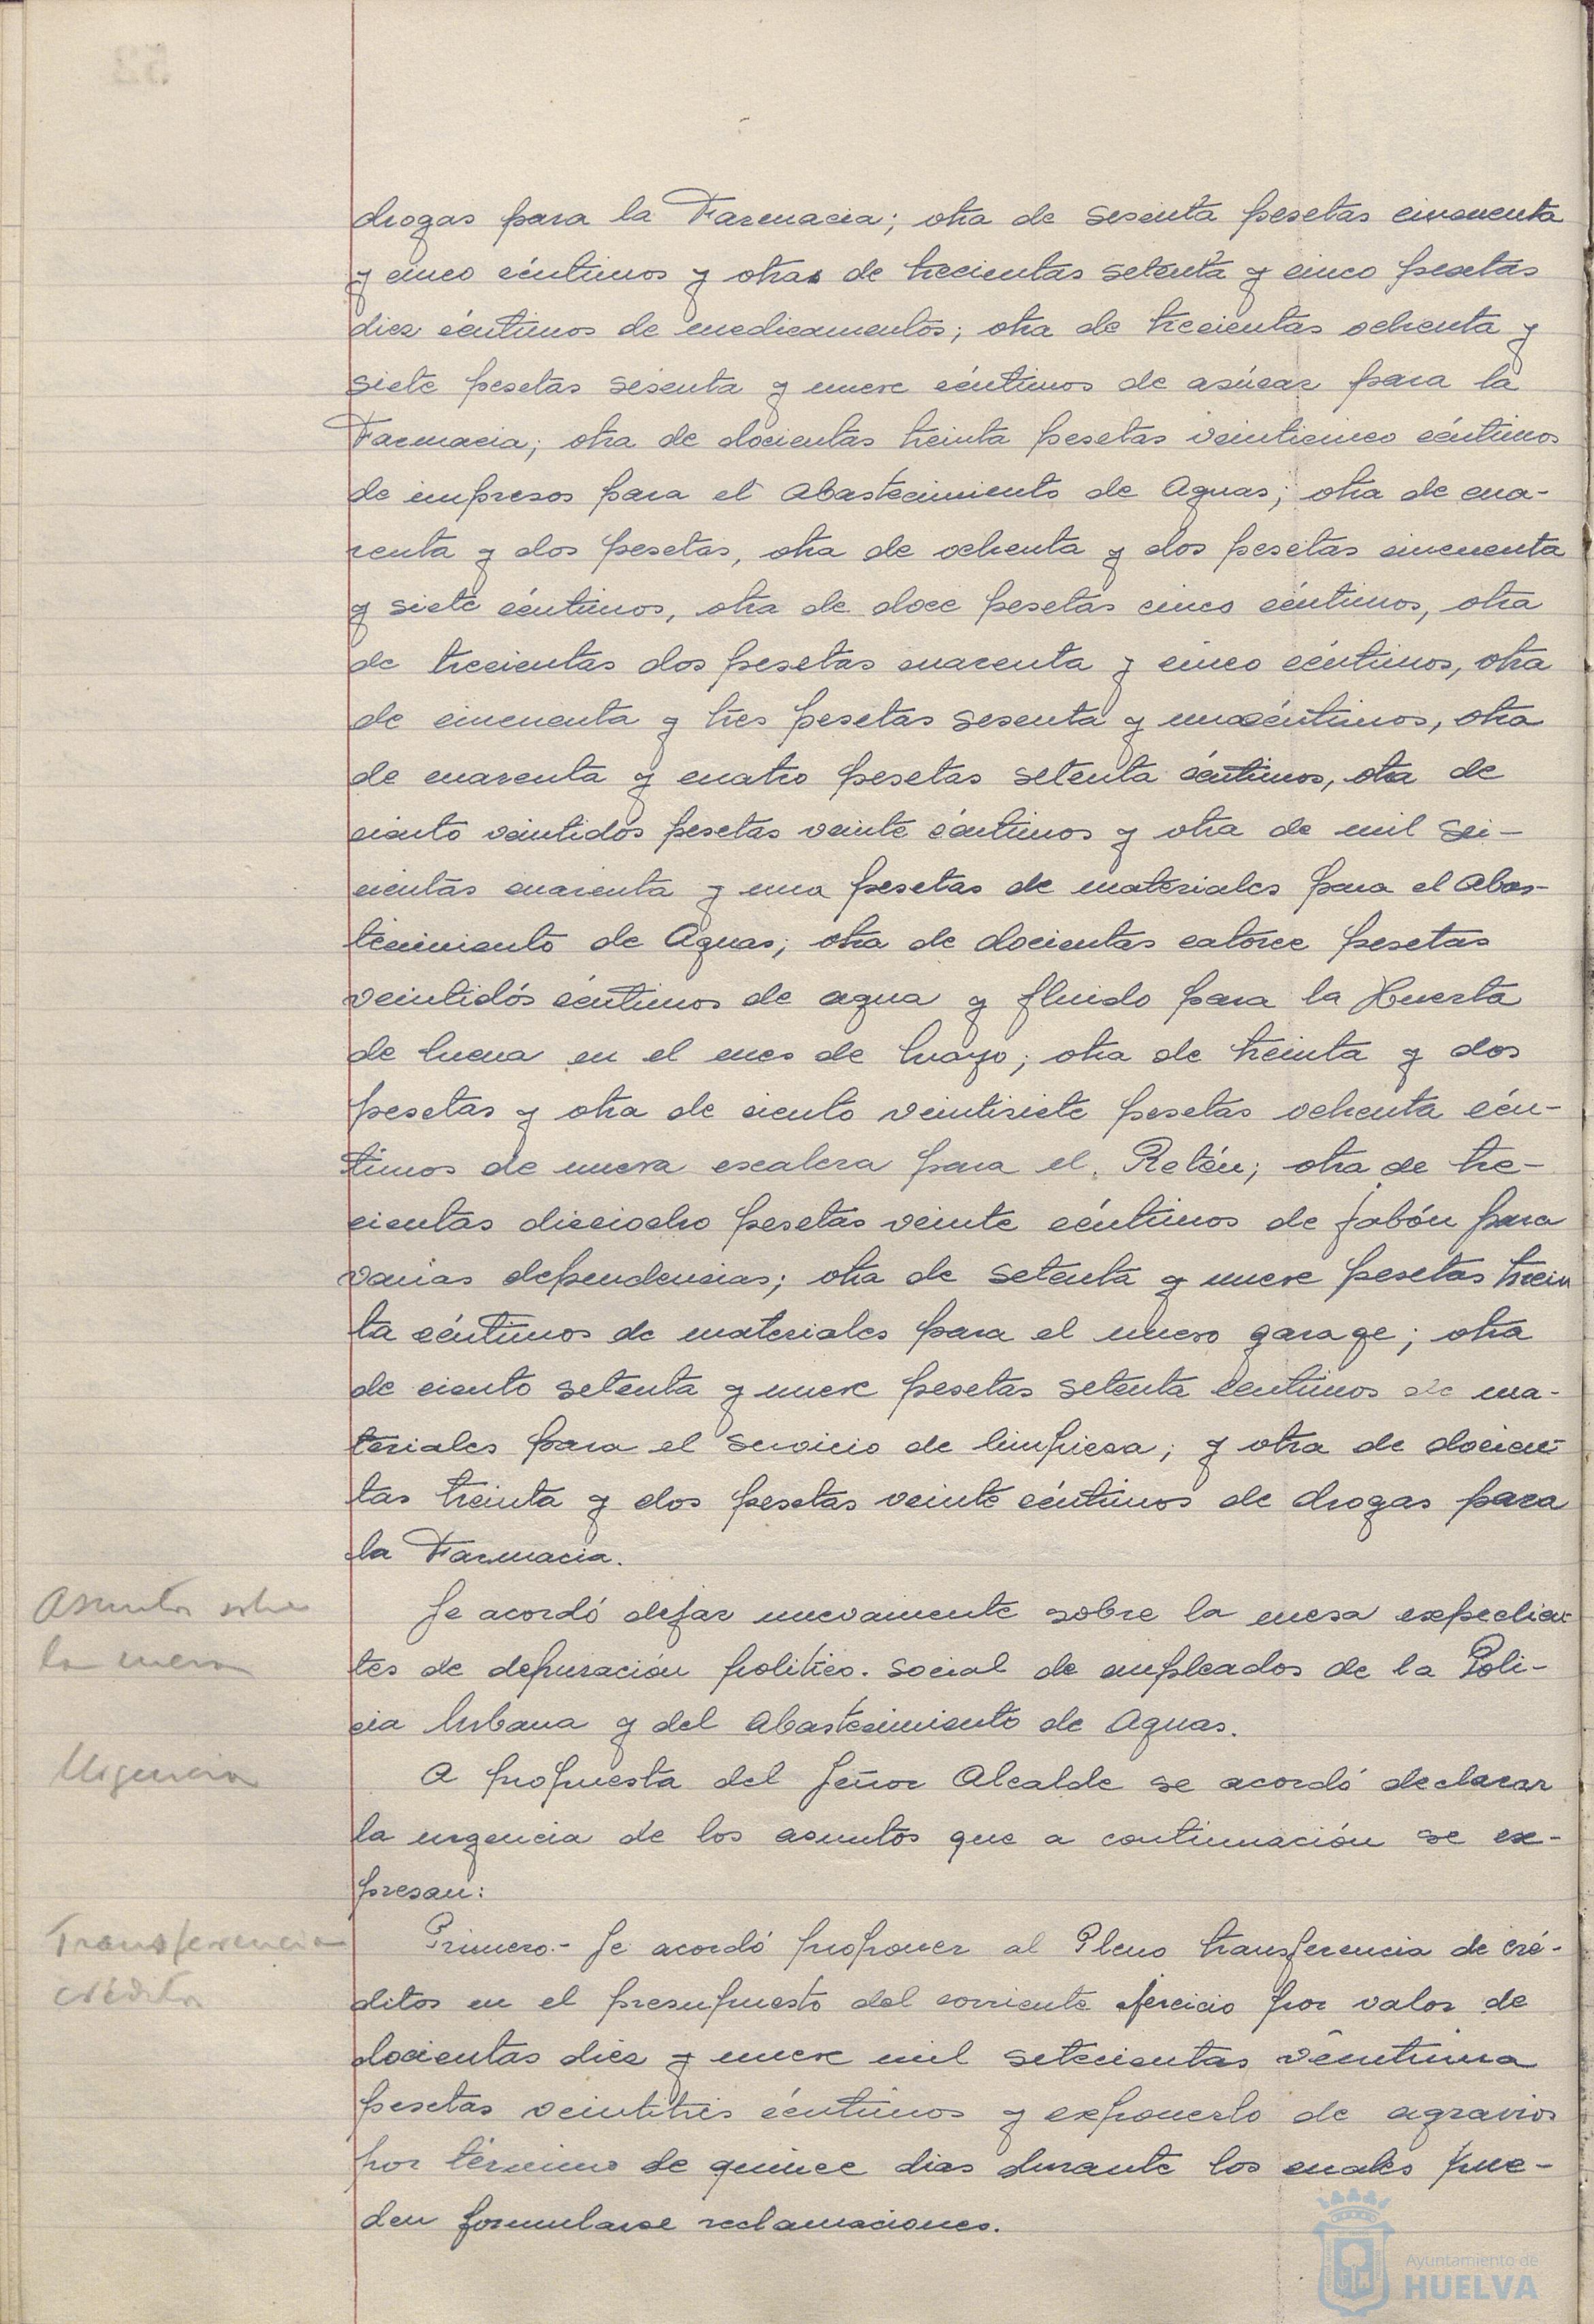 drogas para la Farmacia; otra de sesenta pesetas cincuenta
y cinco céntimos y otras de trecientas setenta y cinco pesetas
diez céntimos de medicamentos; otra de trecientas ochenta y
siete pesetas sesenta y nueve céntimos de azúcar para la
Farmacia; otra de docientas treinta pesetas veinticinco céntimos
de impresos para el Abastecimiento de Aguas; otra de cua-
renta y dos pesetas, otra de ochenta y dos pesetas cincuenta
y siete céntimos, otra de doce pesetas cinco céntimos, otra
de trecientas dos pesetas cuarenta y cinco céntimos, otra
de cincuenta y tres pesetas sesenta y un céntimos, otra
de cuarenta y cuatro pesetas setenta céntimos, otra de
ciento veintidós pesetas veinte céntimos y otra de mil sei-
cientas cuarenta y una pesetas de materiales para el Abas-
tecimiento de Aguas; otra de docientas catorce pesetas
veintidós céntimos de agua y fluido para la Huerta
de Mena en el mes de Mayo; otra de treinta y dos
pesetas y otra de ciento veintisiete pesetas ochenta cén-
timos de nueva escalera para el Retén; otra de tre-
cientas dieciocho pesetas veinte céntimos de jabón para
varias dependencias; otra de setenta y nueve pesetas trein
ta céntimos de materiales para el nuevo garage; otra
de ciento setenta y nueve pesetas setenta centimos de ma-
teriales para el servicio de limpieza; y otra de docien-
tas treinta y dos pesetas veinte céntimos de drogas para
la Farmacia.
Asuntos sobre
la mesa
Se acordó dejar nuevamente sobre la mesa expedien-
tes de depuración politico-social de empleados de la Poli-
cia Urbana y del Abastecimiento de Aguas.
Urgencia
A propuesta del Señor Alcalde se acordó declarar
la urgencia de los asuntos que a continuación se ex-
presan:
Transferencia
crédito
Primero.- Se acordó proponer al Pleno transferencia de cré-
ditos en el presupuesto del corriente ejercicio por valor de
docientas diez y nueve mil setecientas veintiuna
pesetas veintitrés céntimos y exponerlo de agravios
por término de quince dias durante los cuales pue-
den formularse reclamaciones.
Ayuntamiento de
HUELVA